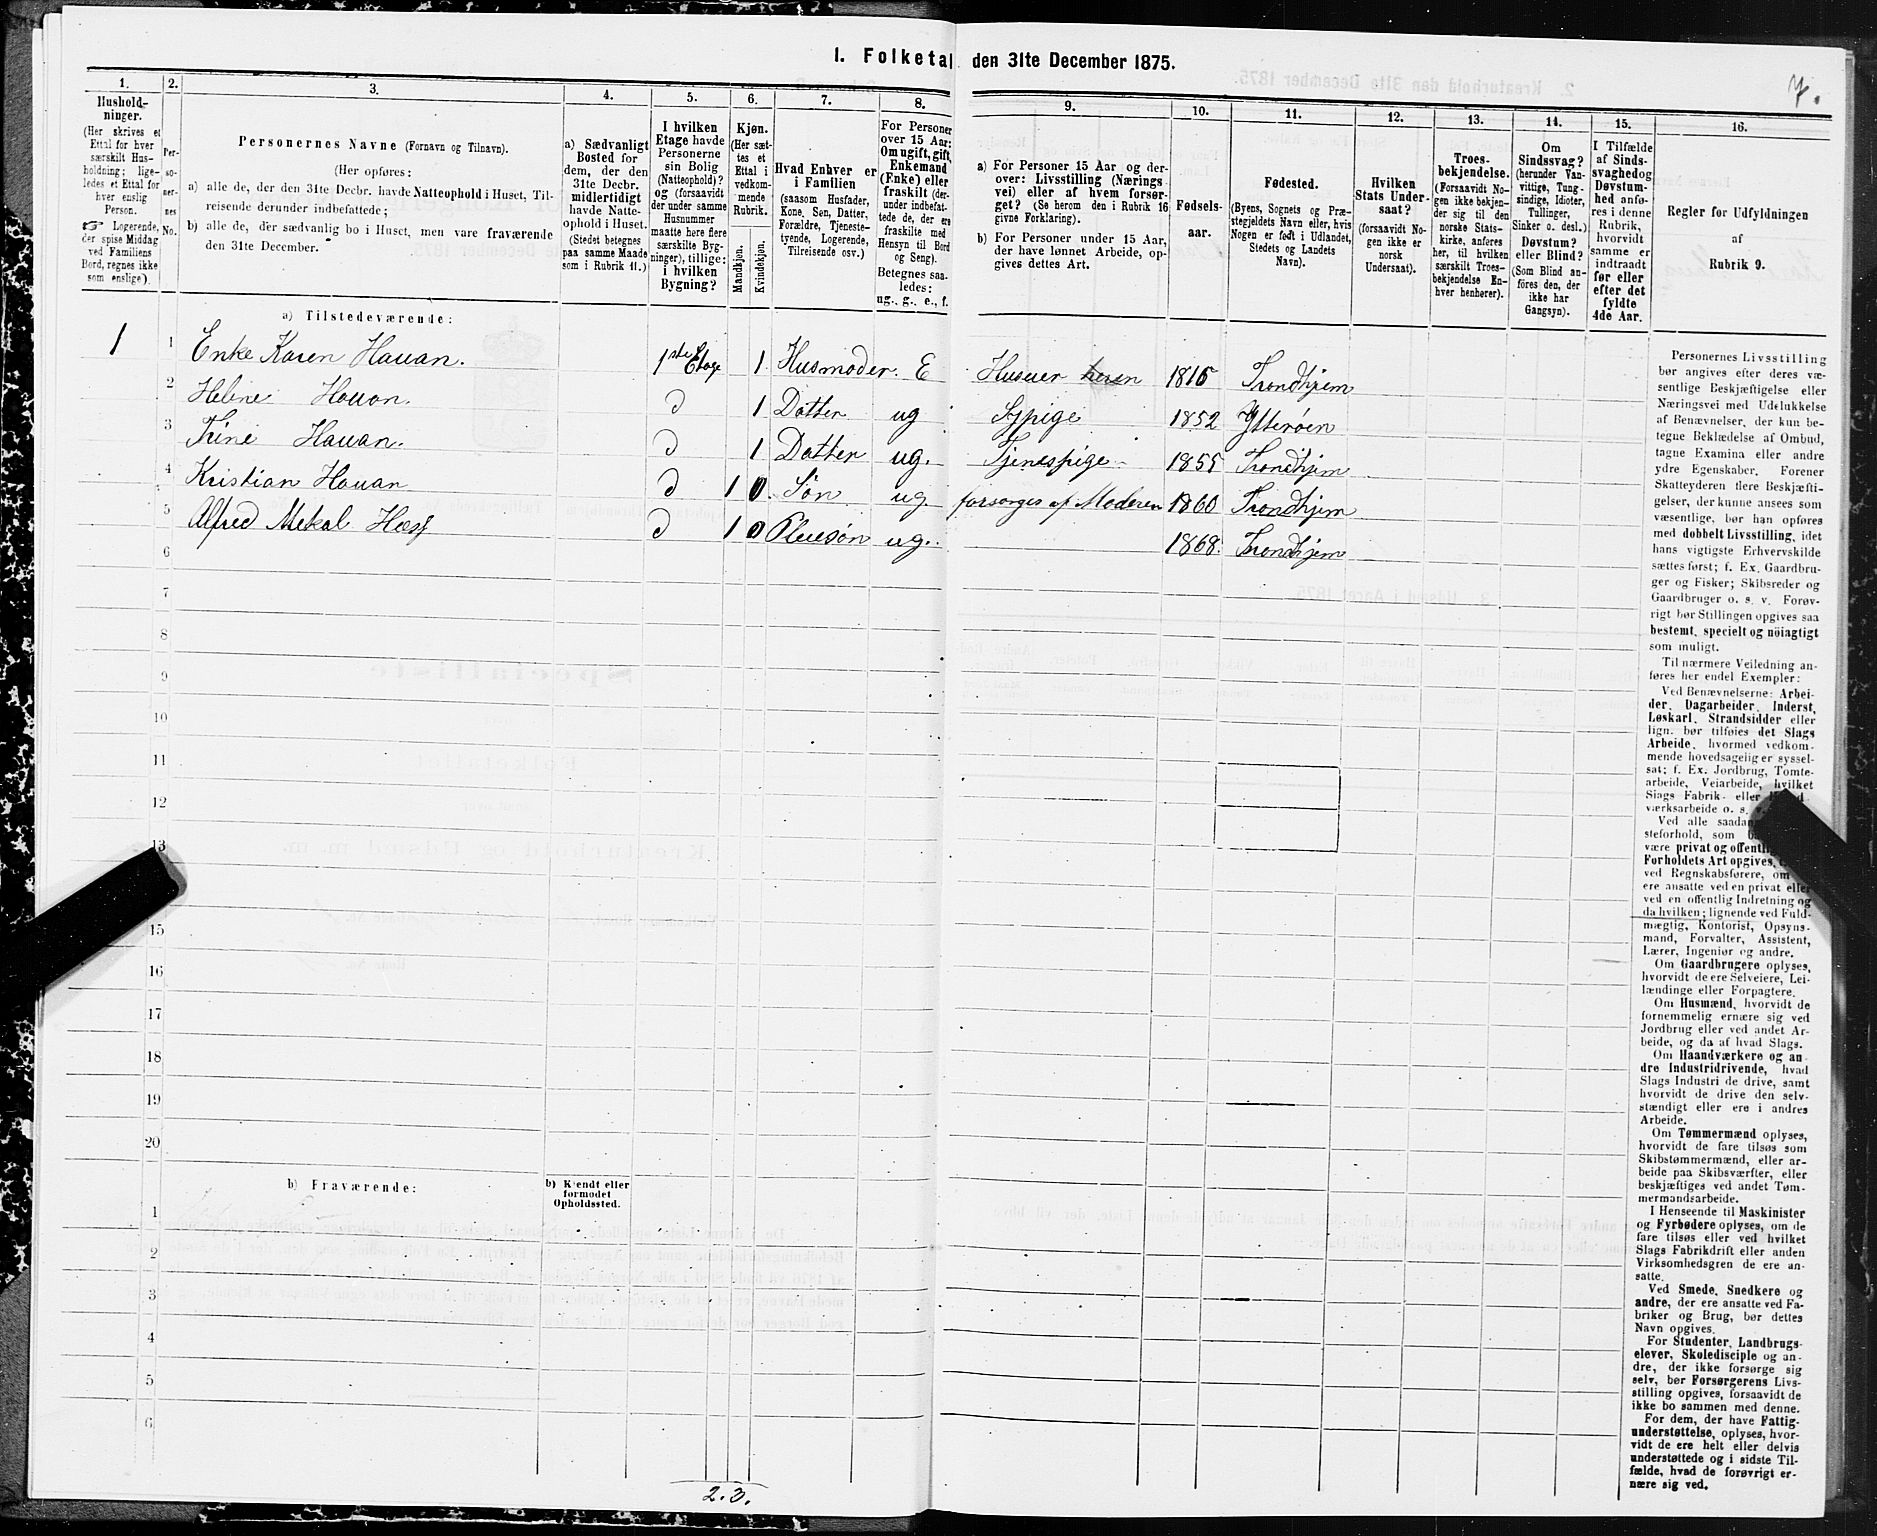 I. Folketal den 31te December 1875.
7.
1.
Hushold-
ninger.
(Her skrives et
Ettal for hver
særskilt Hus-
holdning; lige-
ledes et Ettal for
hver enslig
Person.
☞ Logerende,
der spise Middag
ved Familiens
Bord, regnes ikke
som enslige).
2.
Per-
so-
ner-
nes
No.
3.
Personernes Navne (Fornavn og Tilnavn).
(Her opføres:
a) alle de, der den 31te Decbr. havde Natteophold i Huset, Til-
reisende derunder indbefattede;
b) alle de, der sædvanlig bo i Huset, men vare fraværende
den 31te December.
4.
a) Sædvanligt
Bosted for
dem, der den
31te Decbr.
midlertidigt
havde Natte-
ophold i Huset.
(Stedet betegnes
paa samme Maade
som i Rubrik 11.)
5.
I hvilken
Etage havde
Personerne
sin Bolig
(Natteophold)?
og (forsaavidt
der under samme
Husnummer
maatte være flere
særskilte Byg-
ninger), tillige:
i hvilken
Bygning?
6.
Kjøn.
(Her sæt-
tes et
Ettal i
vedkom-
mende
Rubrik.
Mandkjøn.
Kvindekjøn.
7.
Hvad Enhver er
i Familien
(saasom Husfader,
Kone, Søn, Datter,
Forældre, Tjeneste-
tyende, Logerende,
Tilreisende osv.)
8.
For Personer
over 15 Aar:
Om ugift, gift,
Enkemand
(Enke) eller
fraskilt (der-
under indbefat-
tede de, der ere
fraskilte med
Hensyn til Bord
og Seng).
Betegnes saa-
ledes:
ug., g., e., f.
9.
a) For Personer 15 Aar og der-
over: Livsstilling (Nærings
vei) eller af hvem forsør-
get? (Se herom den i Rubrik 16
givne Forklaring).
b) For Personer under 15 Aar,
der have lønnet Arbeide, op-
gives dettes Art.
10.
Fødsels-
aar.
11.
Fødested.
(Byens, Sognets og Præ-
stegjeldets Navn eller, hvis
Nogen er født i Udlandet,
Stedets og Landets
Navn).
12.
Hvilken
Stats Under-
saat?
(forsaavidt No-
gen ikke er
norsk
Undersaat).
13.
Troes-
bekjendelse.
(Forsaavidt No-
gen ikke bekjen-
der sig til den
norske Stats-
kirke, anføres
her, til hvilken
særskilt Troes-
bekjendelse En-
hver henhører).
14.
Om
Sindssvag?
(herunder Van-
vittige, Tung-
sindige, Idioter,
Tullinger,
Sinker o. desl.)
Døvstum?
eller Blind?
(Som Blind an-
føres den, der
ikke har
Gangsyn).
15.
I Tilfælde
af Sinds-
svaghed og
Døvstum-
hed anfø-
res i denne
Rubrik,
hvorvidt
samme er
indtraadt
før eller
efter det
fyldte
4de Aar.
16.
Regler for Udfyldningen
af
Rubrik 9.
a) Tilstedeværende:
1 1 Enke Karen Hauan. 1ste Etage 1 Husmoder. E Huseier 1815 Trondhjem
2 Heline Hauan. D 1 Datter ug Sypige 1852 Ytterøen
3 Trine Hauan. D 1 Datter ug. Tjenespige 1855 Trondhjem
4 Kristian Hauan D 1 0. Søn ug. forsørges af Moderen 1860 Trondhjem
5 Alfred Mekal D 1 0 Pleiesøn ug. 1868. Trondhjem
6
7
8
9
10
11
12
13
15
16
17
18
19
20
b) Fraværende:
b) Kjendt eller
formodet
Opholdssted.
1
2
3
4
5
6
2.3.
Personernes Livsstilling
bør angives efter deres væ-
sentlige Beskjæftigelse eller
Næringsvei med Udelukkelse
af Benævnelser, der kun be-
tegne Beklædelse af Ombud,
tagne Examina eller andre
ydre Egenskaber. Forener
Skatteyderen flere Beskjæfti-
gelser, der kunne ansees som
væsentlige, bør han opføres
med dobbelt Livsstilling, idet
hans vigtigste Erhvervskilde
sættes først; f. Ex. Gaardbru-
ger og Fisker; Skibsreder og
Gaardbruger o. s. v. Forøv-
rigt bør Stillingen opgives saa
bestemt, specielt og nøiagtigt
som muligt.
Til nærmere Veiledning an-
føres her endel Exempler:
Ved Benævnelserne: Arbei-
der, Dagarbeider, Inderst,
Løskarl, Strandsidder eller
lign. bør tilføies det Slags
Arbeide, hvormed vedkom-
mende hovedsagelig er syssel-
sat; f. Ex. Jordbrug, Tomte-
arbeide, Veiarbeide, hvilket
Slags Fabrik- eller
værksarbeide o. s.
Ved alle
steforhold, som
være privat og
Forholdets Art opgives,
ved Regnskabsførere, om
ere ansatte ved en privat eller
ved en offentlig Indretning og
da hvilken; lignende ved Fuld-
mægtig, Kontorist, Opsyns-
mand, Forvalter, Assistent,
Lærer, Ingeniør og andre.
Om Gaardbrugere oplyses,
hvorvidt de ere Selveiere, Lei-
lændinge eller Forpagtere.
Om Husmænd, hvorvidt de
fornemmelig ernære sig ved
Jordbrug eller ved andet Ar-
beide, og da af hvad Slags.
Om Haandværkere og an-
dre Industridrivende, hvad
Slags Industri de drive, samt
hvorvidt de drive den selv-
stændigt eller ere i andres
Arbeide.
Om Tømmermænd oplyses,
hvorvidt de fare tilsøs som
Skibstømmermænd, eller ar-
beide paa Skibsværfter, eller
beskjæftiges ved andet Tøm-
mermandsarbeide.
I Henseende til Maskinister
og Fyrbødere oplyses, om de
fare tilsøs eller ved hvilket
Slags Fabrikdrift eller anden
Virksomhedsgren de ere an-
satte.
Ved Smede, Snedkere og
andre, der ere ansatte ved Fa-
briker og Brug, bør dettes
Navn opgives.
For Studenter, Landbrugs-
elever, Skoledisciple og an-
dre, der ikke forsørge sig
selv, bør Forsørgerens Livs-
stilling opgives, forsaavidt de
ikke bo sammen med denne.
For dem, der have Fattig-
understøttelse, oplyses, hvor-
vidt de ere helt eller delvis
understøttede og i sidste Til-
fælde, hvad de forøvrigt er-
nære sig ved.